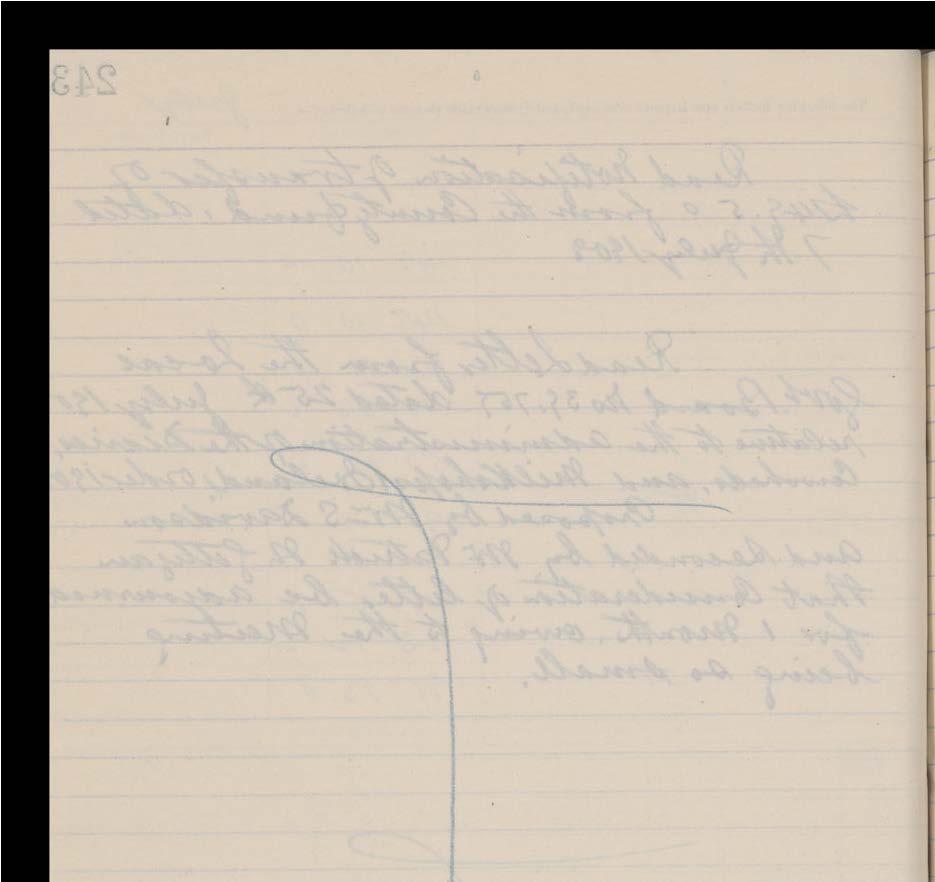 243
Read Notification of transfer of
from the County fund, dated
7th July 1908
Read letter from the Local
Govt. Board No 39,757 dated 25th July 190
relative to the administration of the Dairies,
Cowsheds, and Milkshops (Ireland) Order 190
Proposed by Mr S Davidson
and Seconded by Mr Patrick
that Consideration of letter be adjourned
for 1 Month owing to the Meeting
being so small.